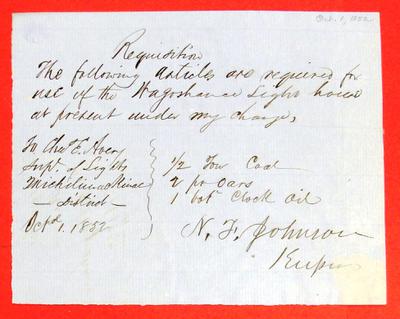 Oct. 1, 1852
Requisition
The following articles are required for
use of the Wagoshance Light house
at present under my charge,
To Chas E. Avery
Supt. of Lights
Michilimackinac
— District —
Octr. 1. 1852
1/2 Ton Coal
2 pr Oars
1 botl Clock Oil
N. F. Johnson
Keeper